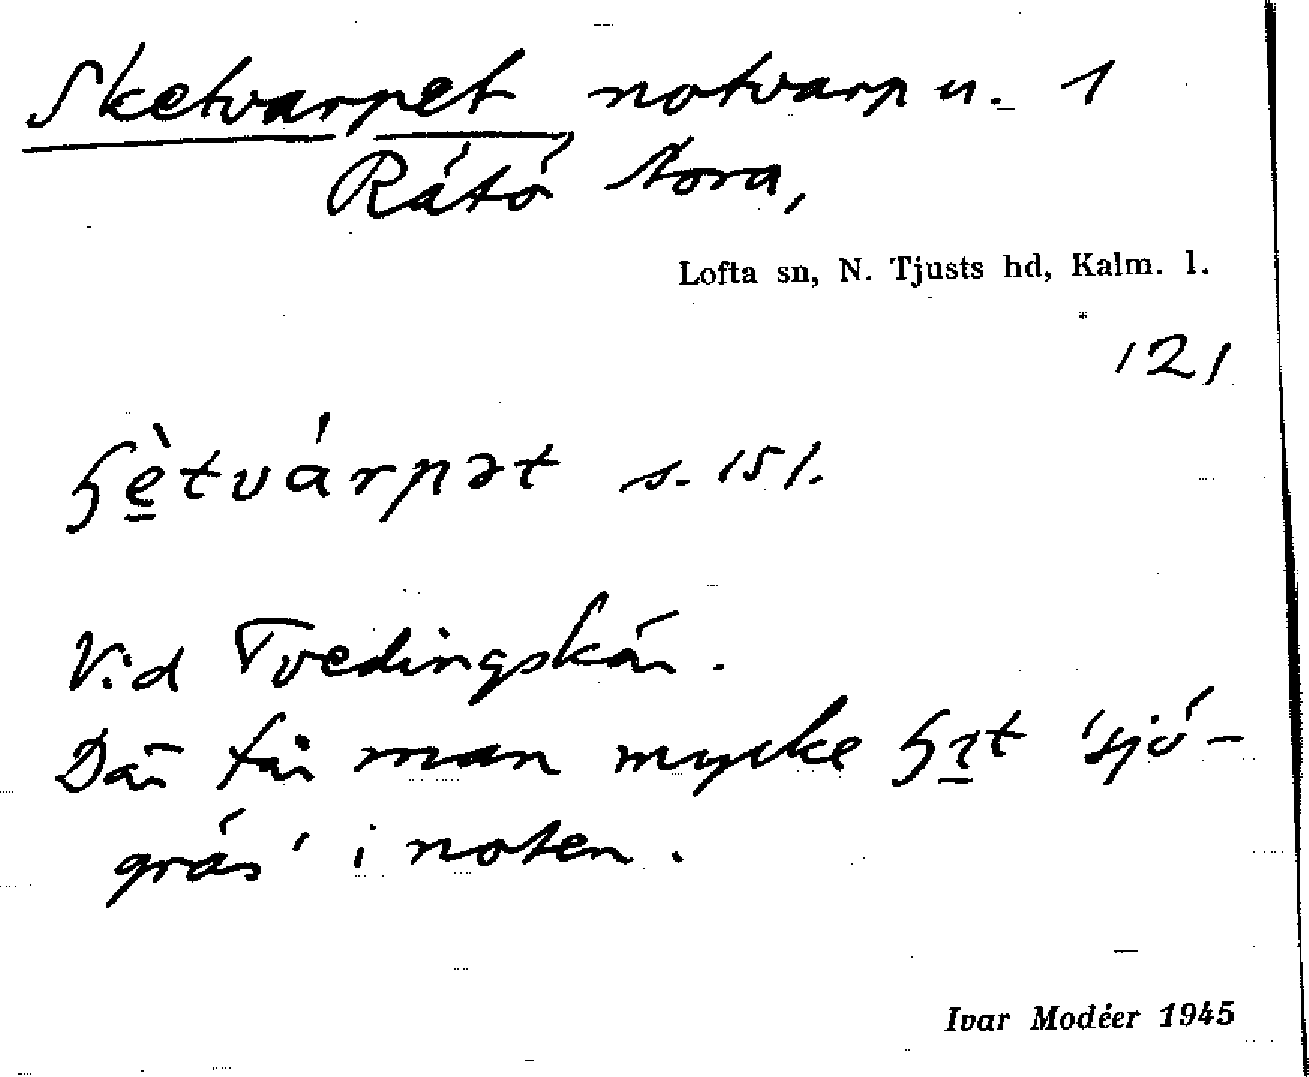 Sketvarpet notvarp u. 1
Rátö tora,
Lofta sn, N. Tjusts hd, Kalm. l.
121
ɧè̱tvárpət s. 151.
Vid Tvedingskär.
Där får man mycke ɧɪ̱t 'sjö-
gräs' i noten.
Ivar Modéer 1945